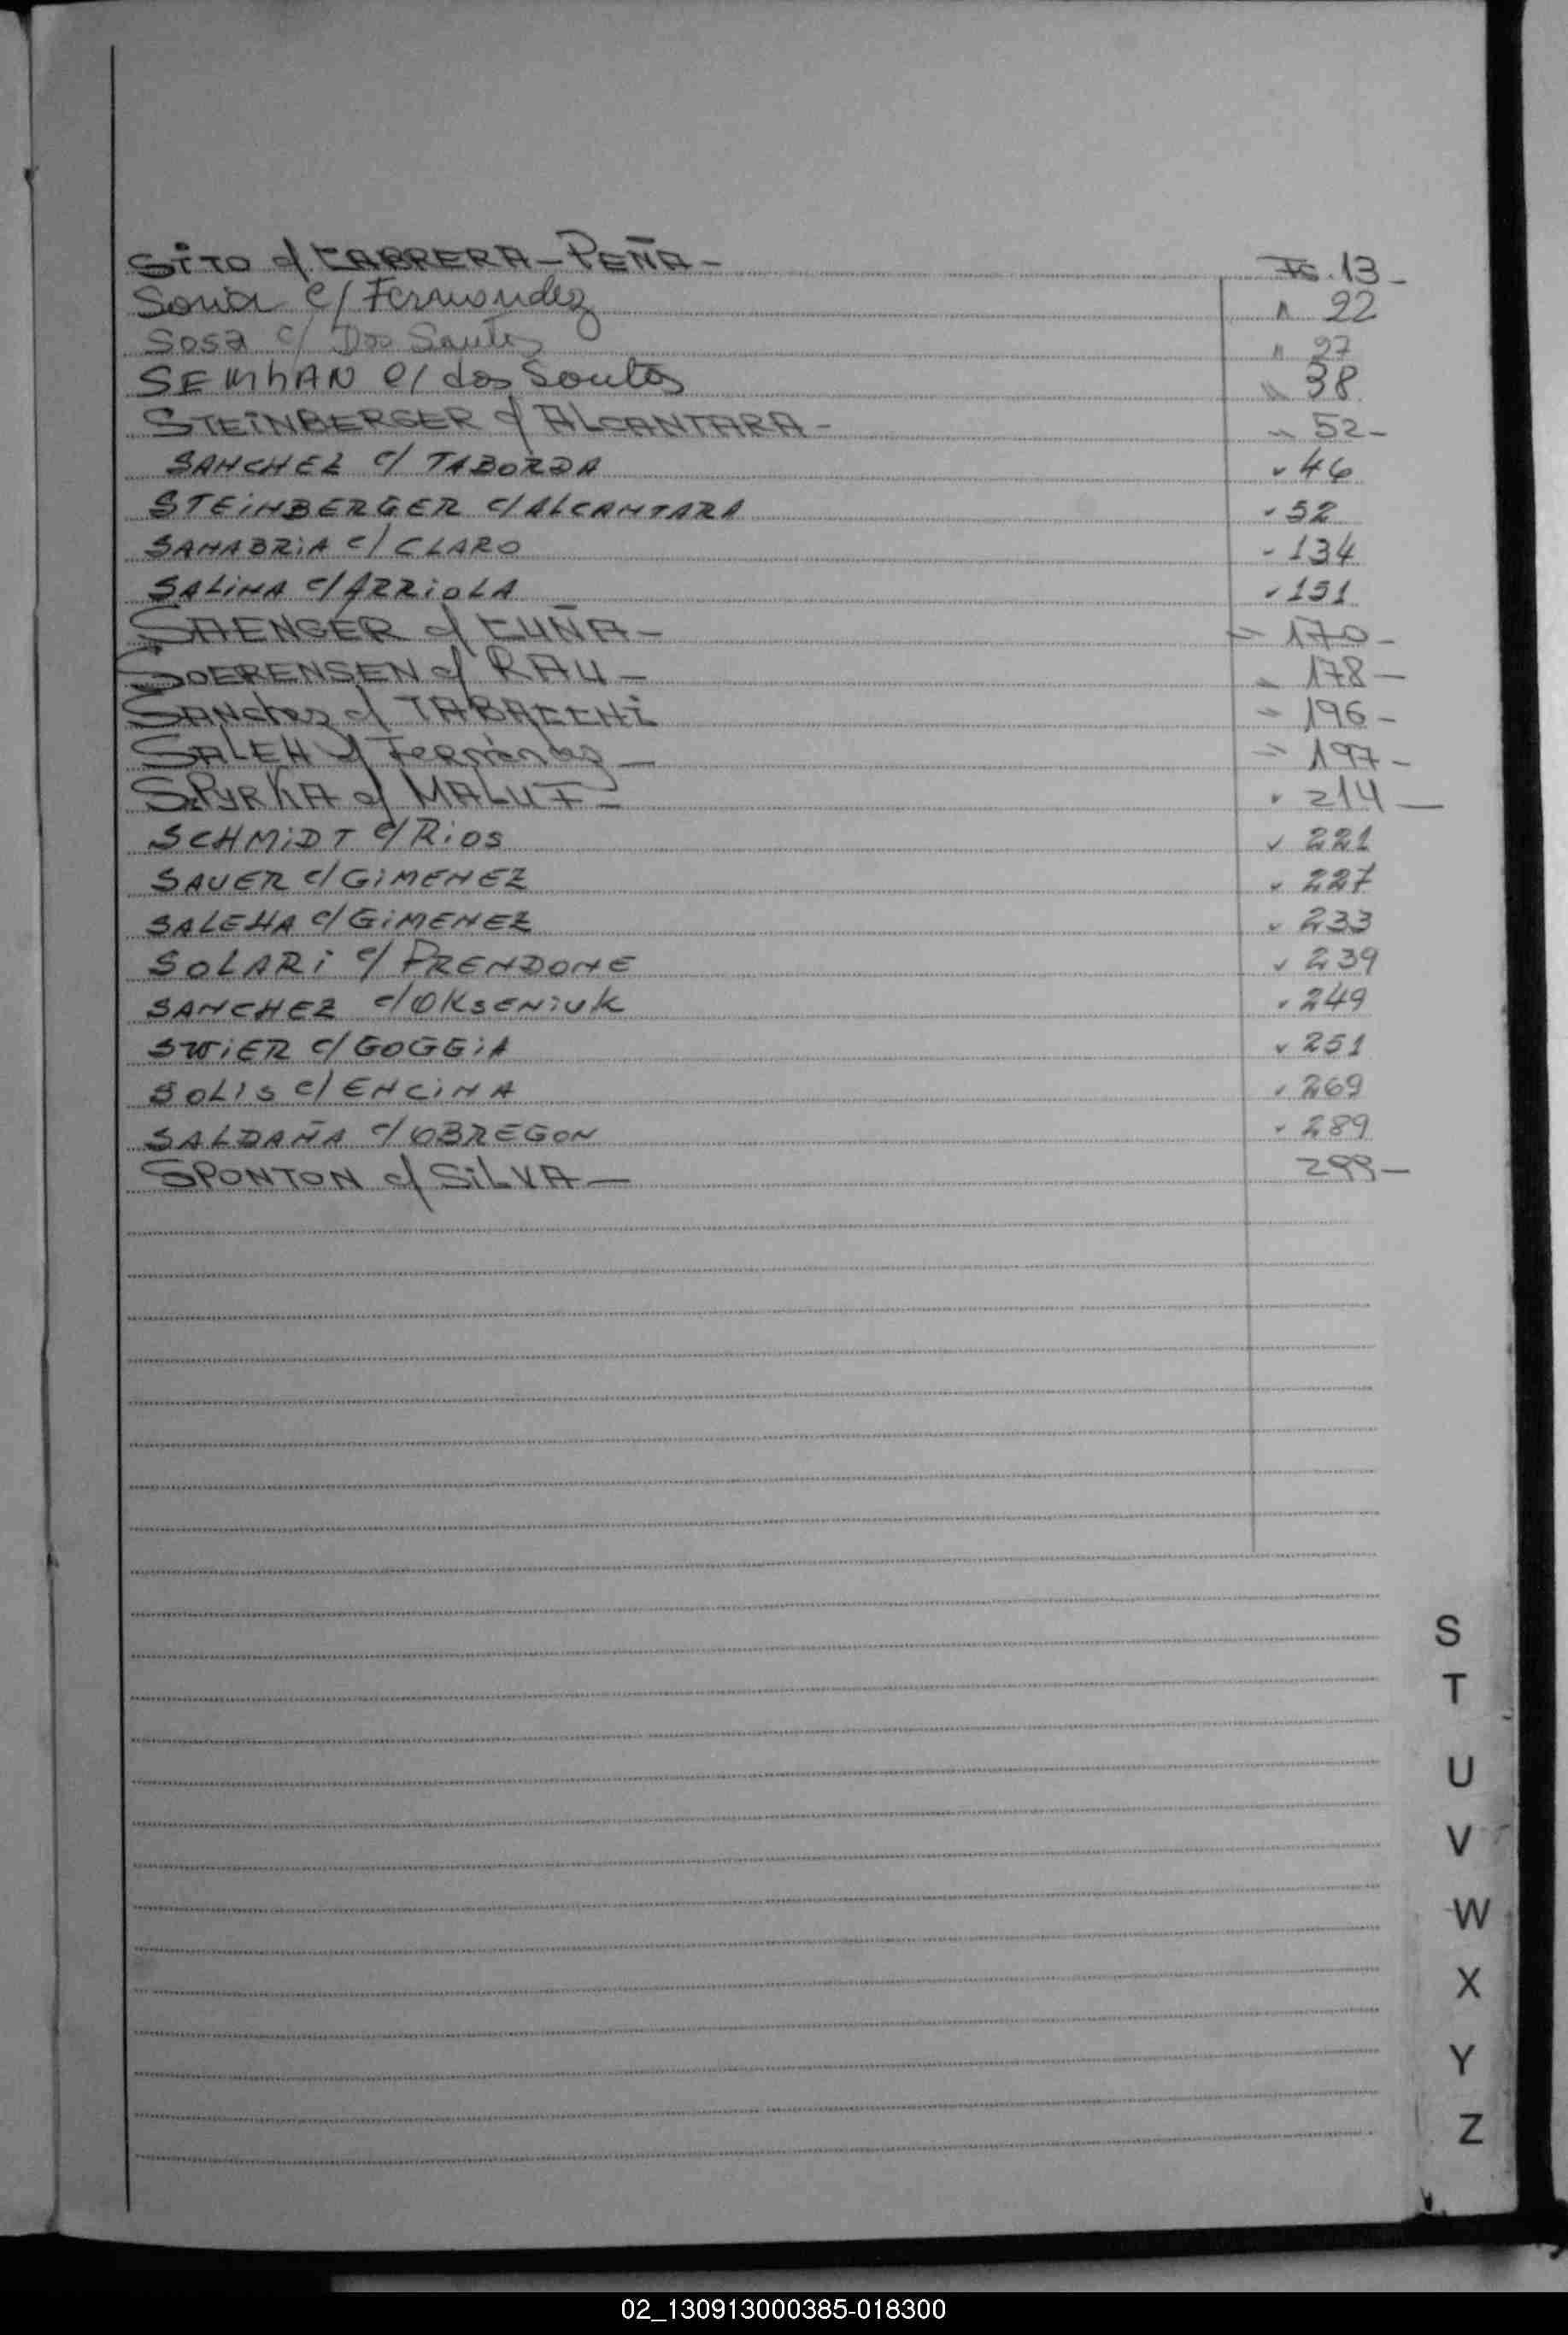 SiTO c/ CABRERA-PEÑA- Fs. 13-
Soria c/ Fernandez " 22
Sosa c/ Dos Santos " 27
SEMhAN c/ dos Santos " 38
STEiNBERGER c/ ALCANTARA- " 52-
SANCHEZ c/ TABORDA " 46
STEiNBERGER c/ ALCANTARA " 52
SANABRiA c/ CLARO " 134
SALiNA c/ ARRiOLA " 151
SAENGER c/ CUÑA- " 170-
SOERENSEN c/ RAU- " 178-
SANchez c/ TABACCHi " 196-
SALEH c/ Fernández- " 197-
SPYRKA c/ MALUF- " 214-
SCHMiDT c/ RiOS " 221
SAUER c/ GiMENEZ " 227
SALEHA c/ GiMENEZ " 233
SOLARi c/ PRENDONE " 239
SANCHEZ c/ OKSENiUK " 249
SWiER c/ GOGGiA " 251
SOLIS c/ ENCiNA " 269
SALDAÑA c/ OBREGON " 289
SPONTON c/ SiLVA- 299-
S
T
U
V
W
X
Y
Z
02_130913000385-018300